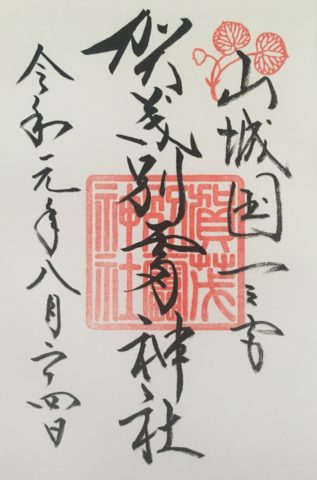 山城国一之宮
賀茂別雷神社
令和元年八月二十四日
賀茂別雷神社